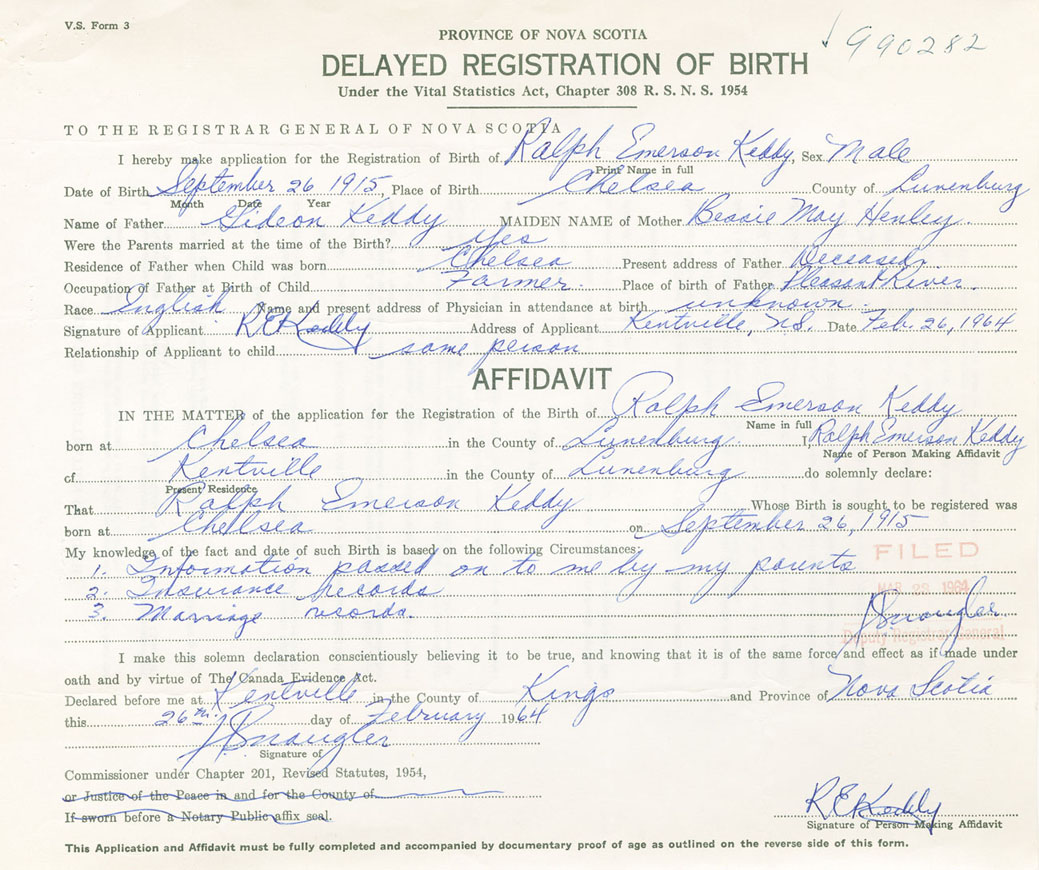 V.S. Form 3
990282
PROVINCE OF NOVA SCOTIA
DELAYED REGISTRATION OF BIRTH
Under the Vital Statistics Act, Chapter 308 R. S. N. S. 1954
TO THE REGISTRAR GENERAL OF NOVA SCOTIA
I hereby make application for the Registration of Birth of Ralph Emerson Keddy, Sex Male
Print Name in full
Date of Birth September 26 1915, Place of Birth Chelsea, County of Lunenburg
Month Date Year
Name of Father Gideon Keddy MAIDEN NAME of Mother Bessie May Henley.
Were the Parents married at the time of the Birth? yes
Residence of Father when Child was born Chelsea Present address of Father Deceased
Occupation of Father at Birth of Child Farmer. Place of birth of Father Pleasant River.
Race English Name and present address of Physician in attendance at birth unknown.
Signature of Applicant R E Keddy Address of Applicant Kentville, N.S. Date Feb. 26, 1964
Relationship of Applicant to child same person
AFFIDAVIT
IN THE MATTER of the application for the Registration of the Birth of Ralph Emerson Keddy
Name in full
born at Chelsea in the County of Lunenburg. I, Ralph Emerson Keddy
Name of Person Making Affidavit
of Kentville in the County of Lunenburg do solemnly declare:
Present Residence
That Ralph Emerson Keddy Whose Birth is sought to be registered was
born at Chelsea on September 26, 1915
My knowledge of the fact and date of such Birth is based on the following Circumstances:
1. Information passed on to me by my parents
FILED
2. Insurance records
MAR 23 1964
3. Marriage records.
Deputy Registrar General
I make this solemn declaration conscientiously believing it to be true, and knowing that it is of the same force and effect as if made under
oath and by virtue of The Canada Evidence Act.
Declared before me at Kentville in the County of Kings and Province of Nova Scotia
this 26th. day of February 1964
Signature of
Commissioner under Chapter 201, Revised Statutes, 1954,
or Justice of the Peace in and for the County of
If sworn before a Notary Public affix seal.
R E Keddy
Signature of Person Making Affidavit
This Application and Affidavit must be fully completed and accompanied by documentary proof of age as outlined on the reverse side of this form.